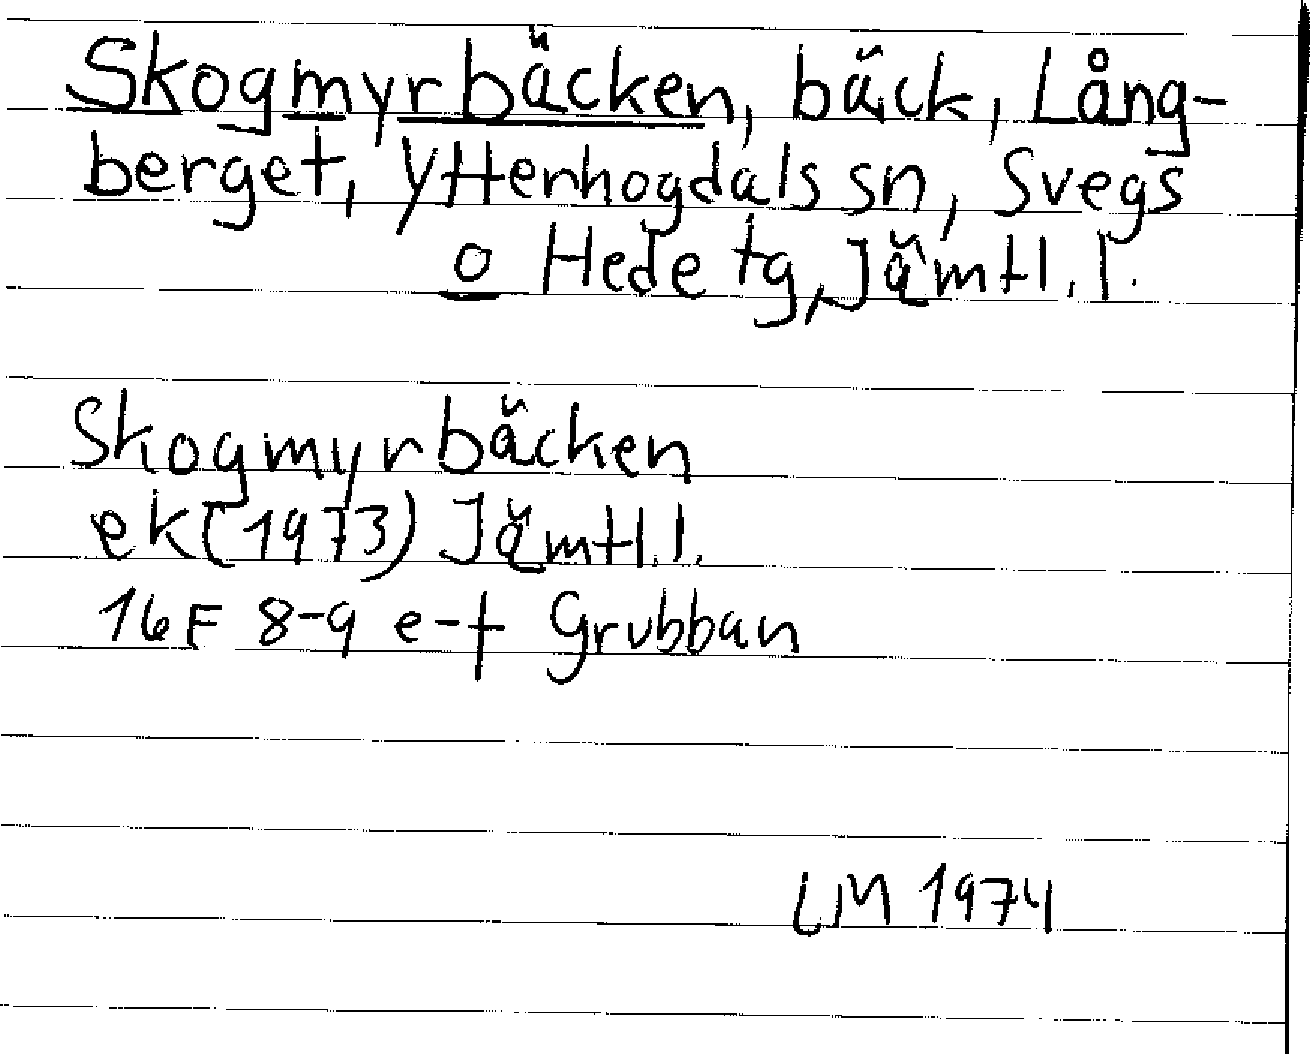 Skogmyrbäcken, bäck, Lång-
berget, Ytterhogdals sn, Svegs
o Hede tg, Jämtl. l.
Skogmyrbäcken
ek (1973) Jämtl. l.
16F 8-9 e-f Grubban
LM 1974